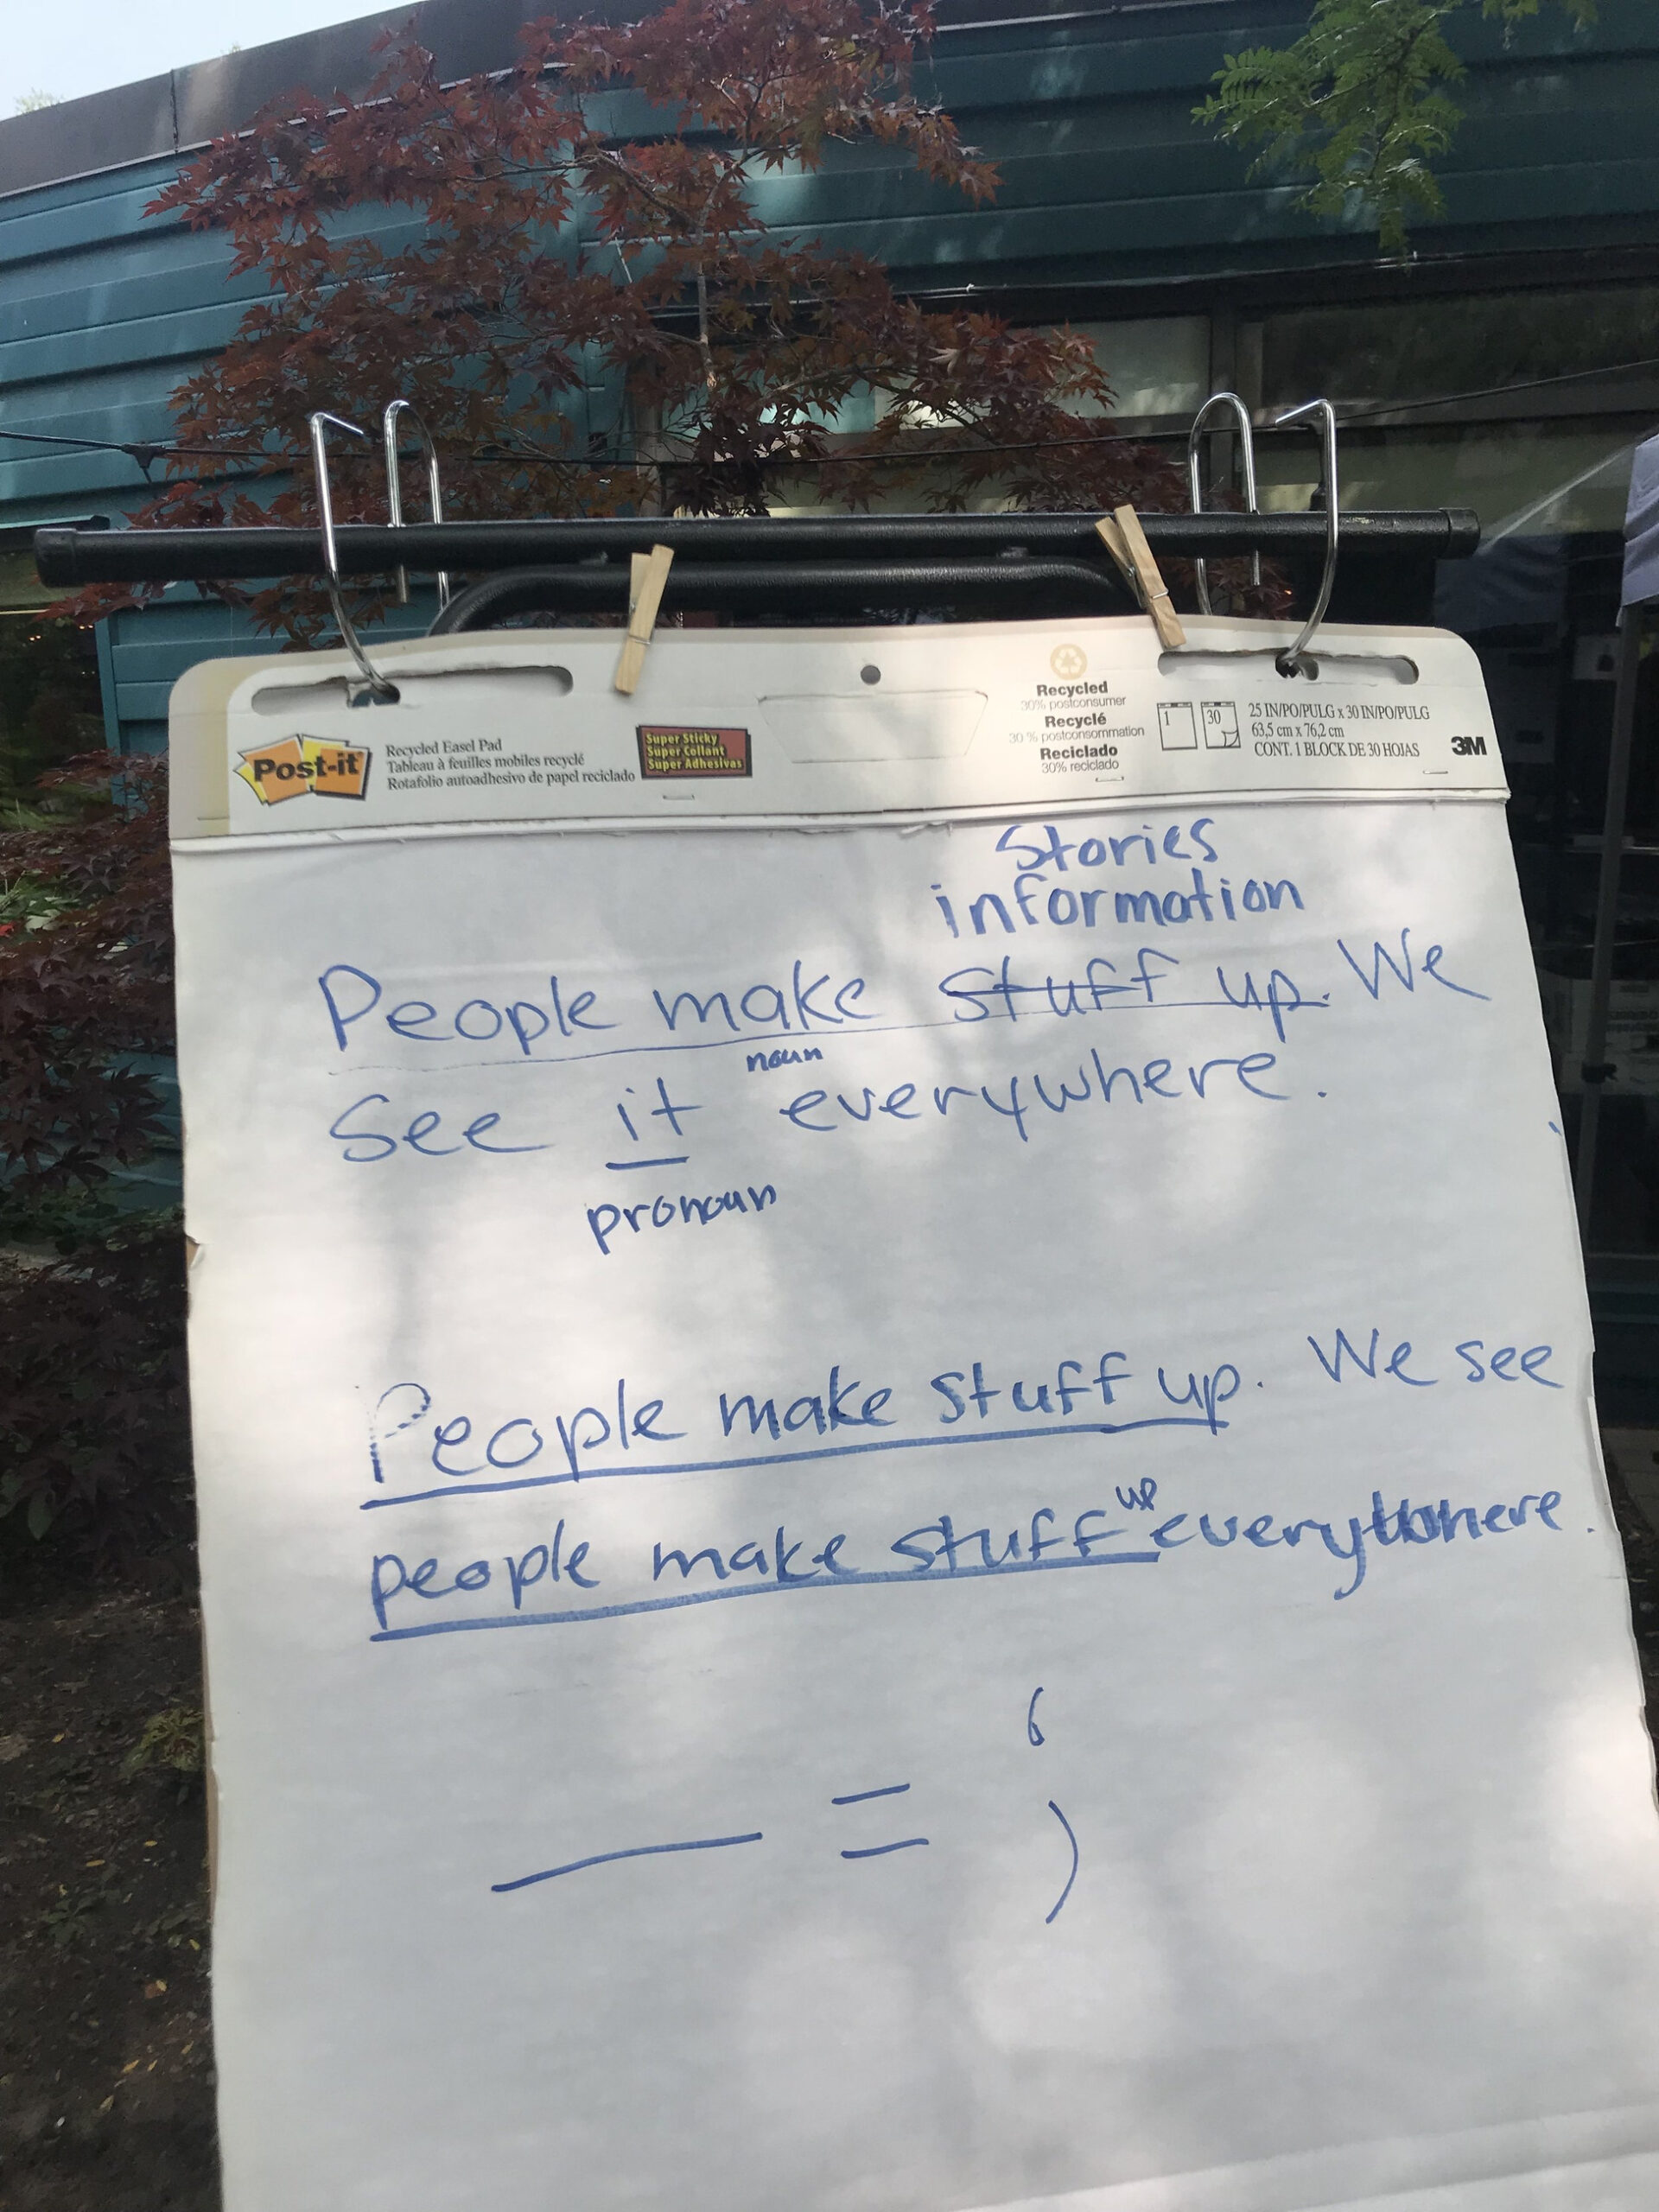 Post-it
Recycled Easel Pad
Tableau à feuilles mobiles recyclé
Rotafolio autoadhesivo de papel reciclado
Super Sticky
Super Collant
Super Adhesivas
Recycled
30% postconsumer
Recyclé
30 % postconsommation
Reciclado
30% reciclado
1
30
25 IN/PO/PULG x 30 IN/PO/PULG
63,5 cm x 76,2 cm
CONT. 1 BLOCK DE 30 HOJAS
3M
Stories
information
People make stuff up. We
noun
see it everywhere.
pronoun
People make stuff up. We see
up
people make stuff everywhere.
— =